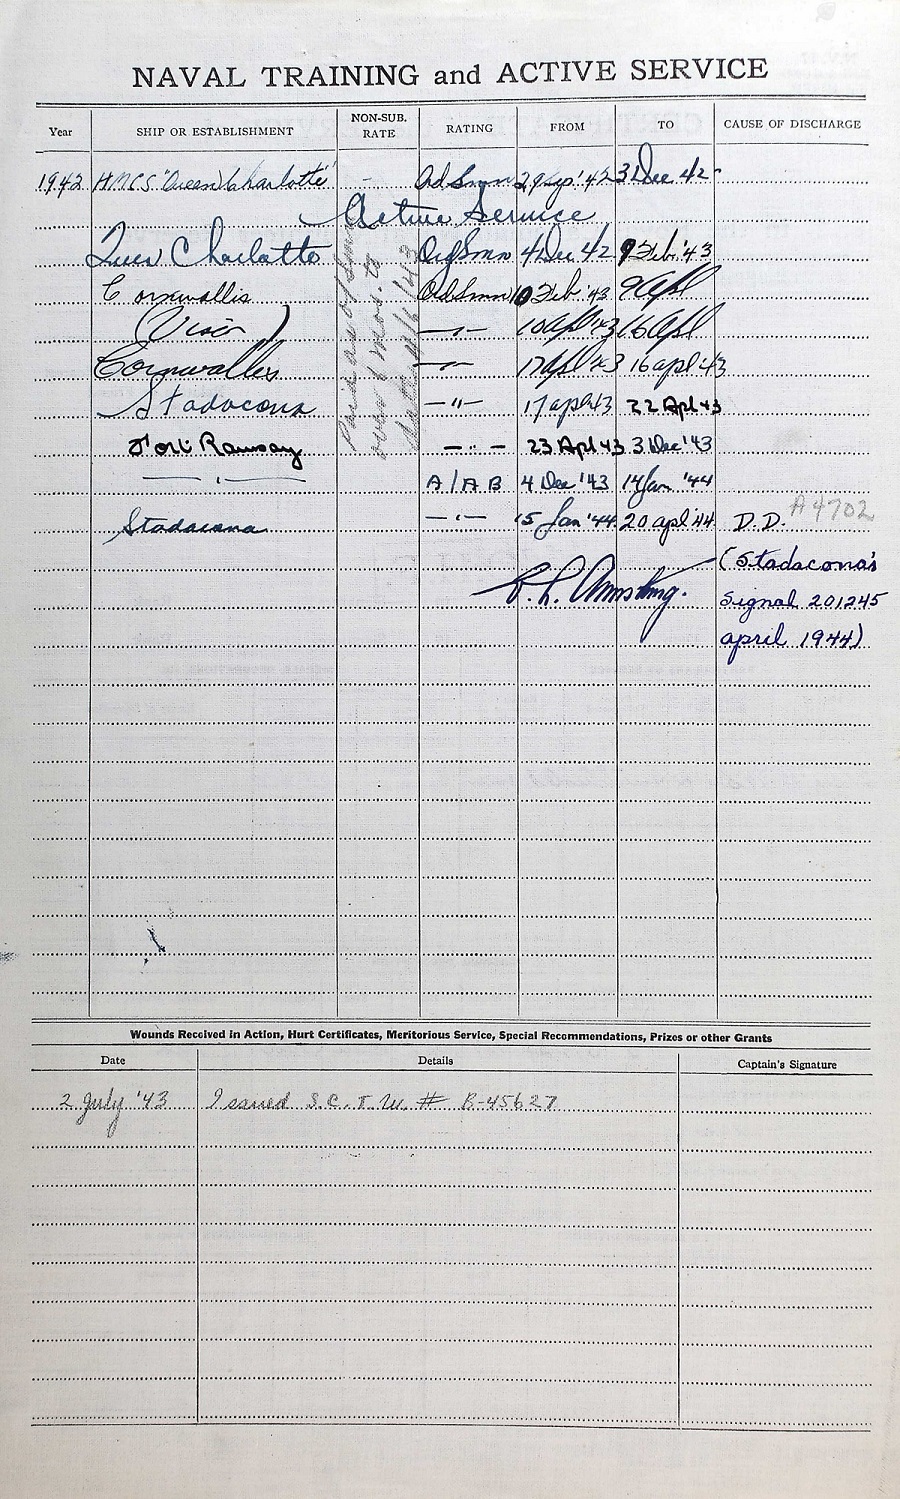 NAVAL TRAINING and ACTIVE SERVICE
Year SHIP OR ESTABLISHMENT NON-SUB. RATE RATING FROM TO CAUSE OF DISCHARGE
1942 H.M.C.S. "Queen Charlotte" - Ord Smn 29 Sep '42 3 Dec 42
Active Service
Queen Charlotte Ord Smn 4 Dec 42 9 Feb. '43
Cornwallis Ord Smn 10 Feb. '43 9 Apl
(Vison) —"— 10 Apl '43 16 Apl
Cornwallis —"— 17 Apl '43 16 Apl 43
Stadacona —"— 17 Apl 43 22 Apl 43
Fort Ramsay —"— 23 Apl 43 3 Dec '43
—"— A/AB 4 Dec '43 14 Jan '44
Stadacona —"— 15 Jan '44 20 Apl '44 D.D. A4702
(Stadacona's
Signal 201245
April 1944)
Paid as O/Smn
over 6 mos. to
Armstrong.
Wounds Received in Action, Hurt Certificates, Meritorious Service, Special Recommendations, Prizes or other Grants
Date Details Captain's Signature
2 July '43 Issued S.C.T.W. # B-45627